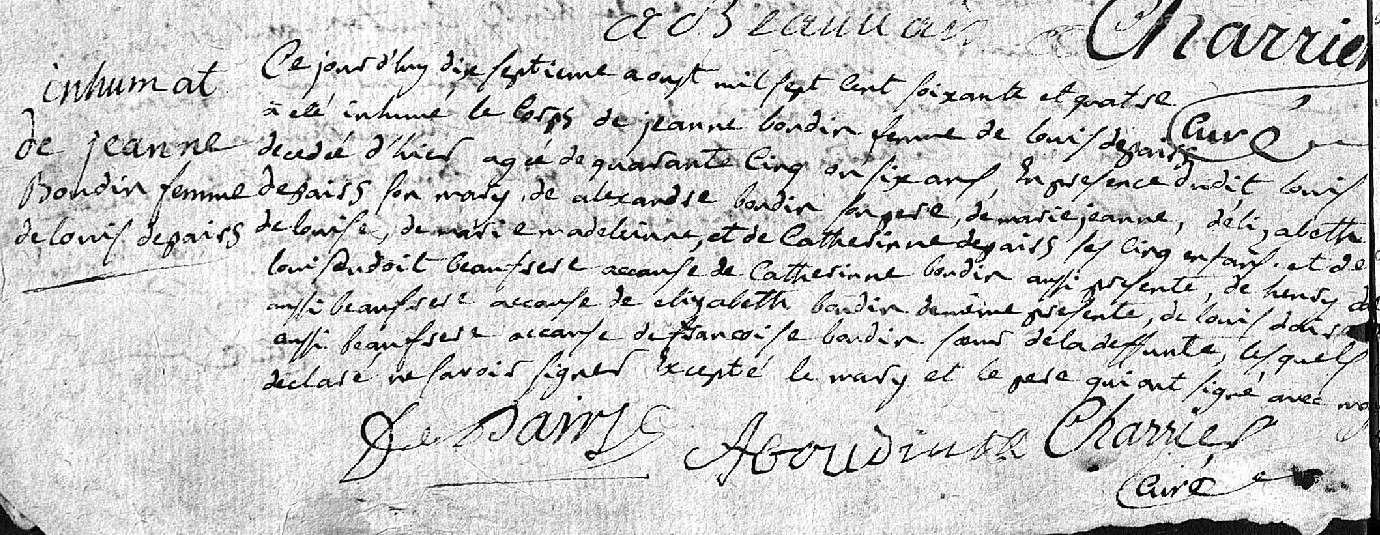 a Beauvais Charrier
curé
inhumat
de jeanne
Boudin femme
de louis depairs
Ce jourd'huy dix septieme aoust mil sept cent soixante et quatre
a eté inhumé le corps de jeanne boudin femme de louis depairs
decedée d'hier agée de quarante cinq ou six ans, En presence dudit louis
depairs son mary, de alexandre boudin son pere, de marie jeanne, d'élizabeth
de louise, de marie madeleinne, et de Catherinne depairs ses cinq enfans. et de
louis beaufrere accause de Catherinne boudin aussi presente, de henry
aussi beaufrere accause de elizabeth boudin demême présente, de louis
aussi beaufrere accause de françoise boudin sœur de la deffunte, lesquels
declaré ne savoir signer Excepté le mary et le pere qui ont signé avec moy
De Pairs A boudin Charrier
curé